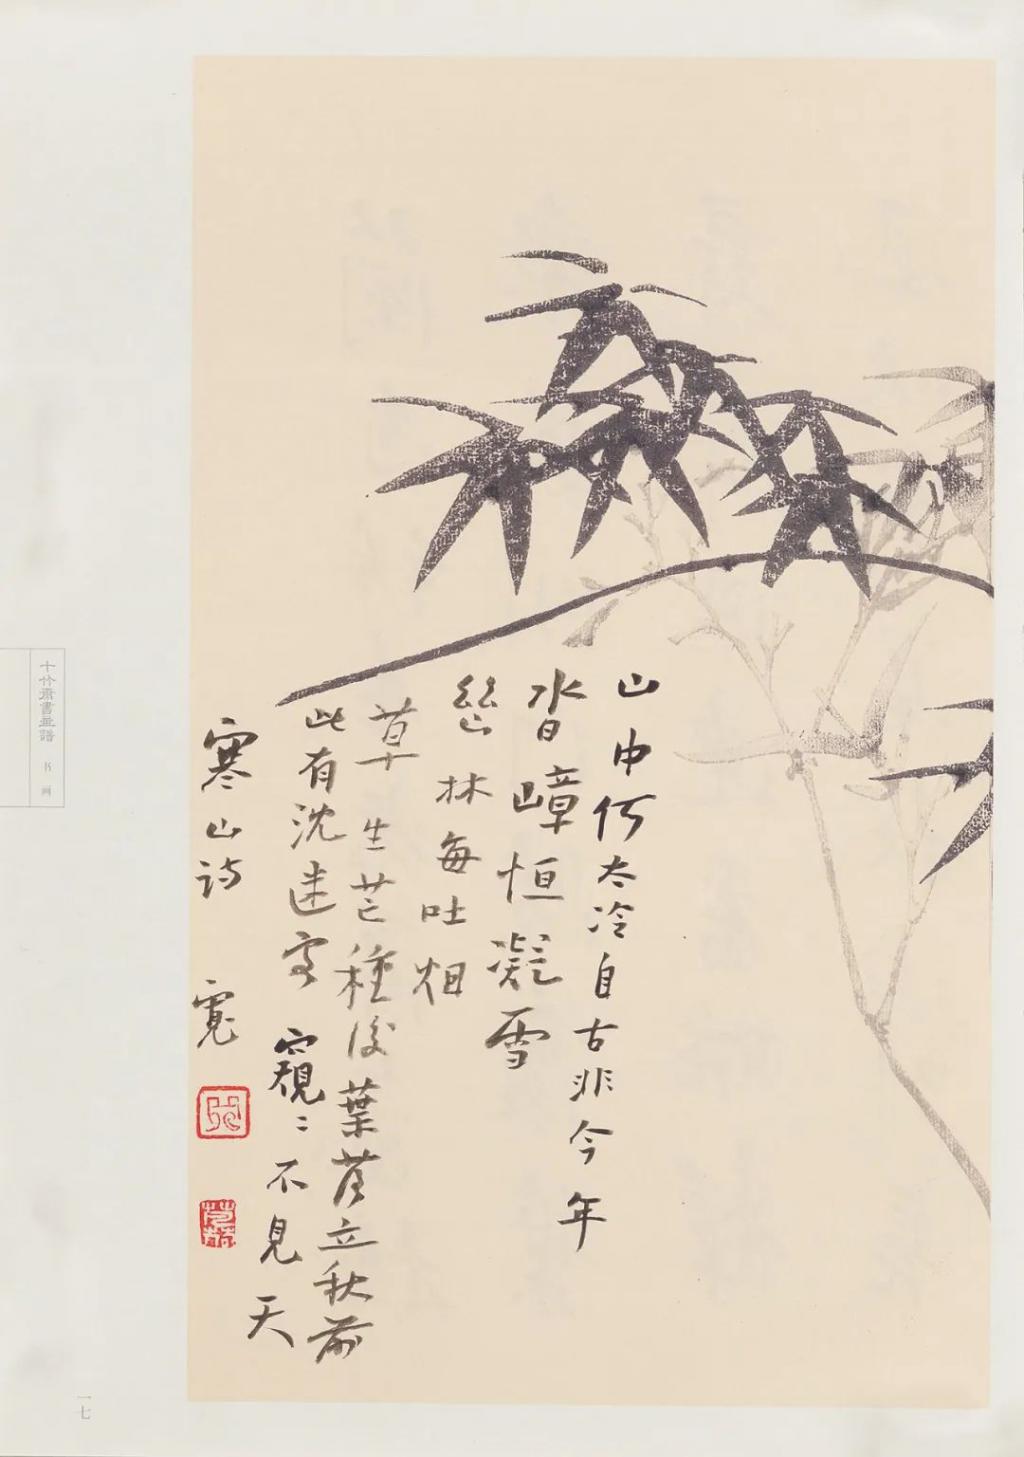 山中何太冷自古非今年
沓嶂恒凝雪
幽林每吐烟
草生芒種後葉落立秋前
此有沈迷客窺〻不見天
寒山诗 寬
十竹齋書畫譜 书画
一七